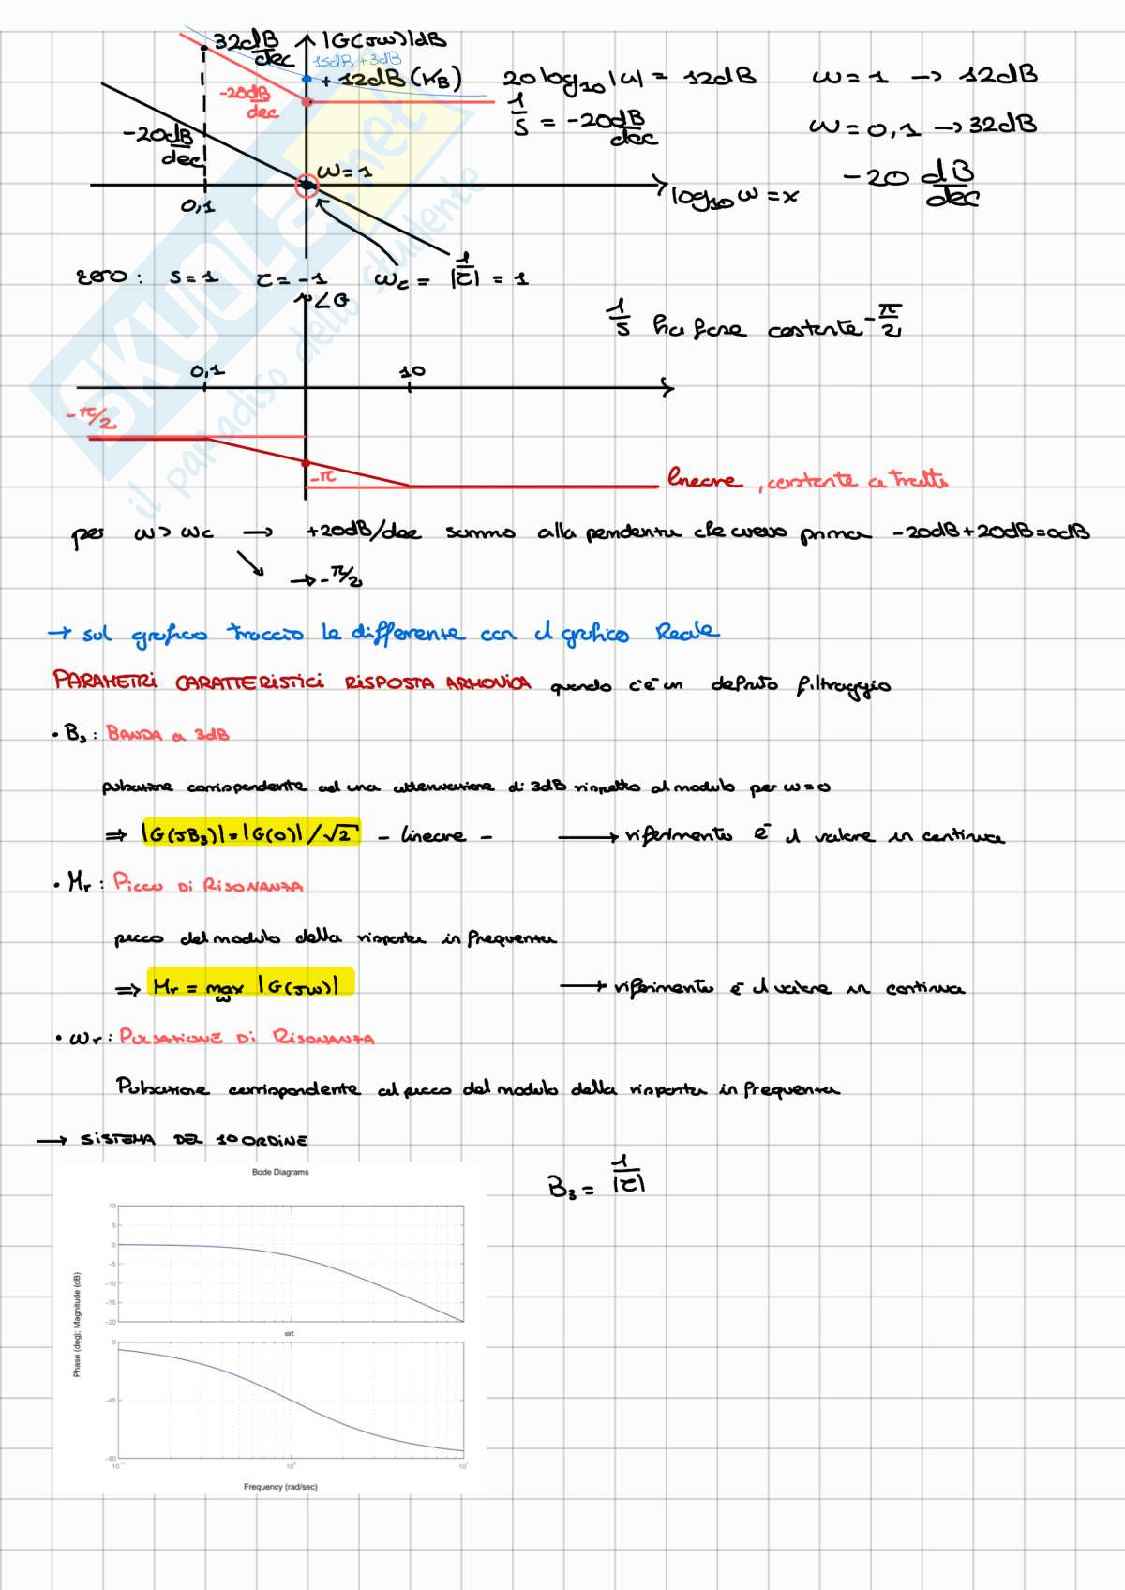 32dB/dec |G(jω)|dB
15dB +3dB
+12dB (KB) 20log₁₀|4| = 12dB ω=1 → 12dB
-20dB/dec
1/s = -20dB/dec ω=0,1 → 32dB
-20dB/dec
ω=1
-20 dB/dec
0,1 log₁₀ω=x
zero: s=1 τ=-1 ωc = 1/|τ| = 1
∠G
1/s ha fase costante -π/2
0,1 10
-π/2
-π
lineare, costante a tratti
per ω>ωc → +20dB/dec sommo alla pendenza che avevo prima -20dB+20dB=0dB
→ -π/2
→ sul grafico traccio le differenze con il grafico Reale
PARAMETRI CARATTERISTICI RISPOSTA ARMONICA quando c'è un definito filtraggio
• B₃: BANDA a 3dB
pulsazione corrispondente ad una attenuazione di 3dB rispetto al modulo per ω=0
⇒ |G(jB₃)|=|G(0)|/√2 - lineare - → riferimento è il valore in continua
• Mr: Picco Di RiSONANZA
picco del modulo della risposta in frequenza
⇒ Mr = max |G(jω)| → riferimento è il valore in continua
ω
• ωr: PULSAZIONE Di RiSONANZA
Pulsazione corrispondente al picco del modulo della risposta in frequenza
→ SiSTEMA DEL 1O ORDiNE
B₃ = 1/|τ|
Bode Diagrams
10
5
0
-5
-10
-15
-20
0
-45
-90
Phase (deg); Magnitude (dB)
Frequency (rad/sec)
SKUOLA.net
il paradiso dello studente